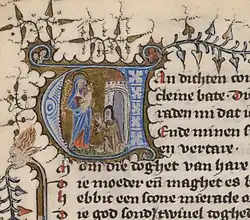 An dichten co
cleine bate · Di
raden mi dat ic
Ende minen s
en vertare ·
om die doghet van hare
ie moeder en maghet es b
ebbic een scone miracle
ie god sonder twivel togh